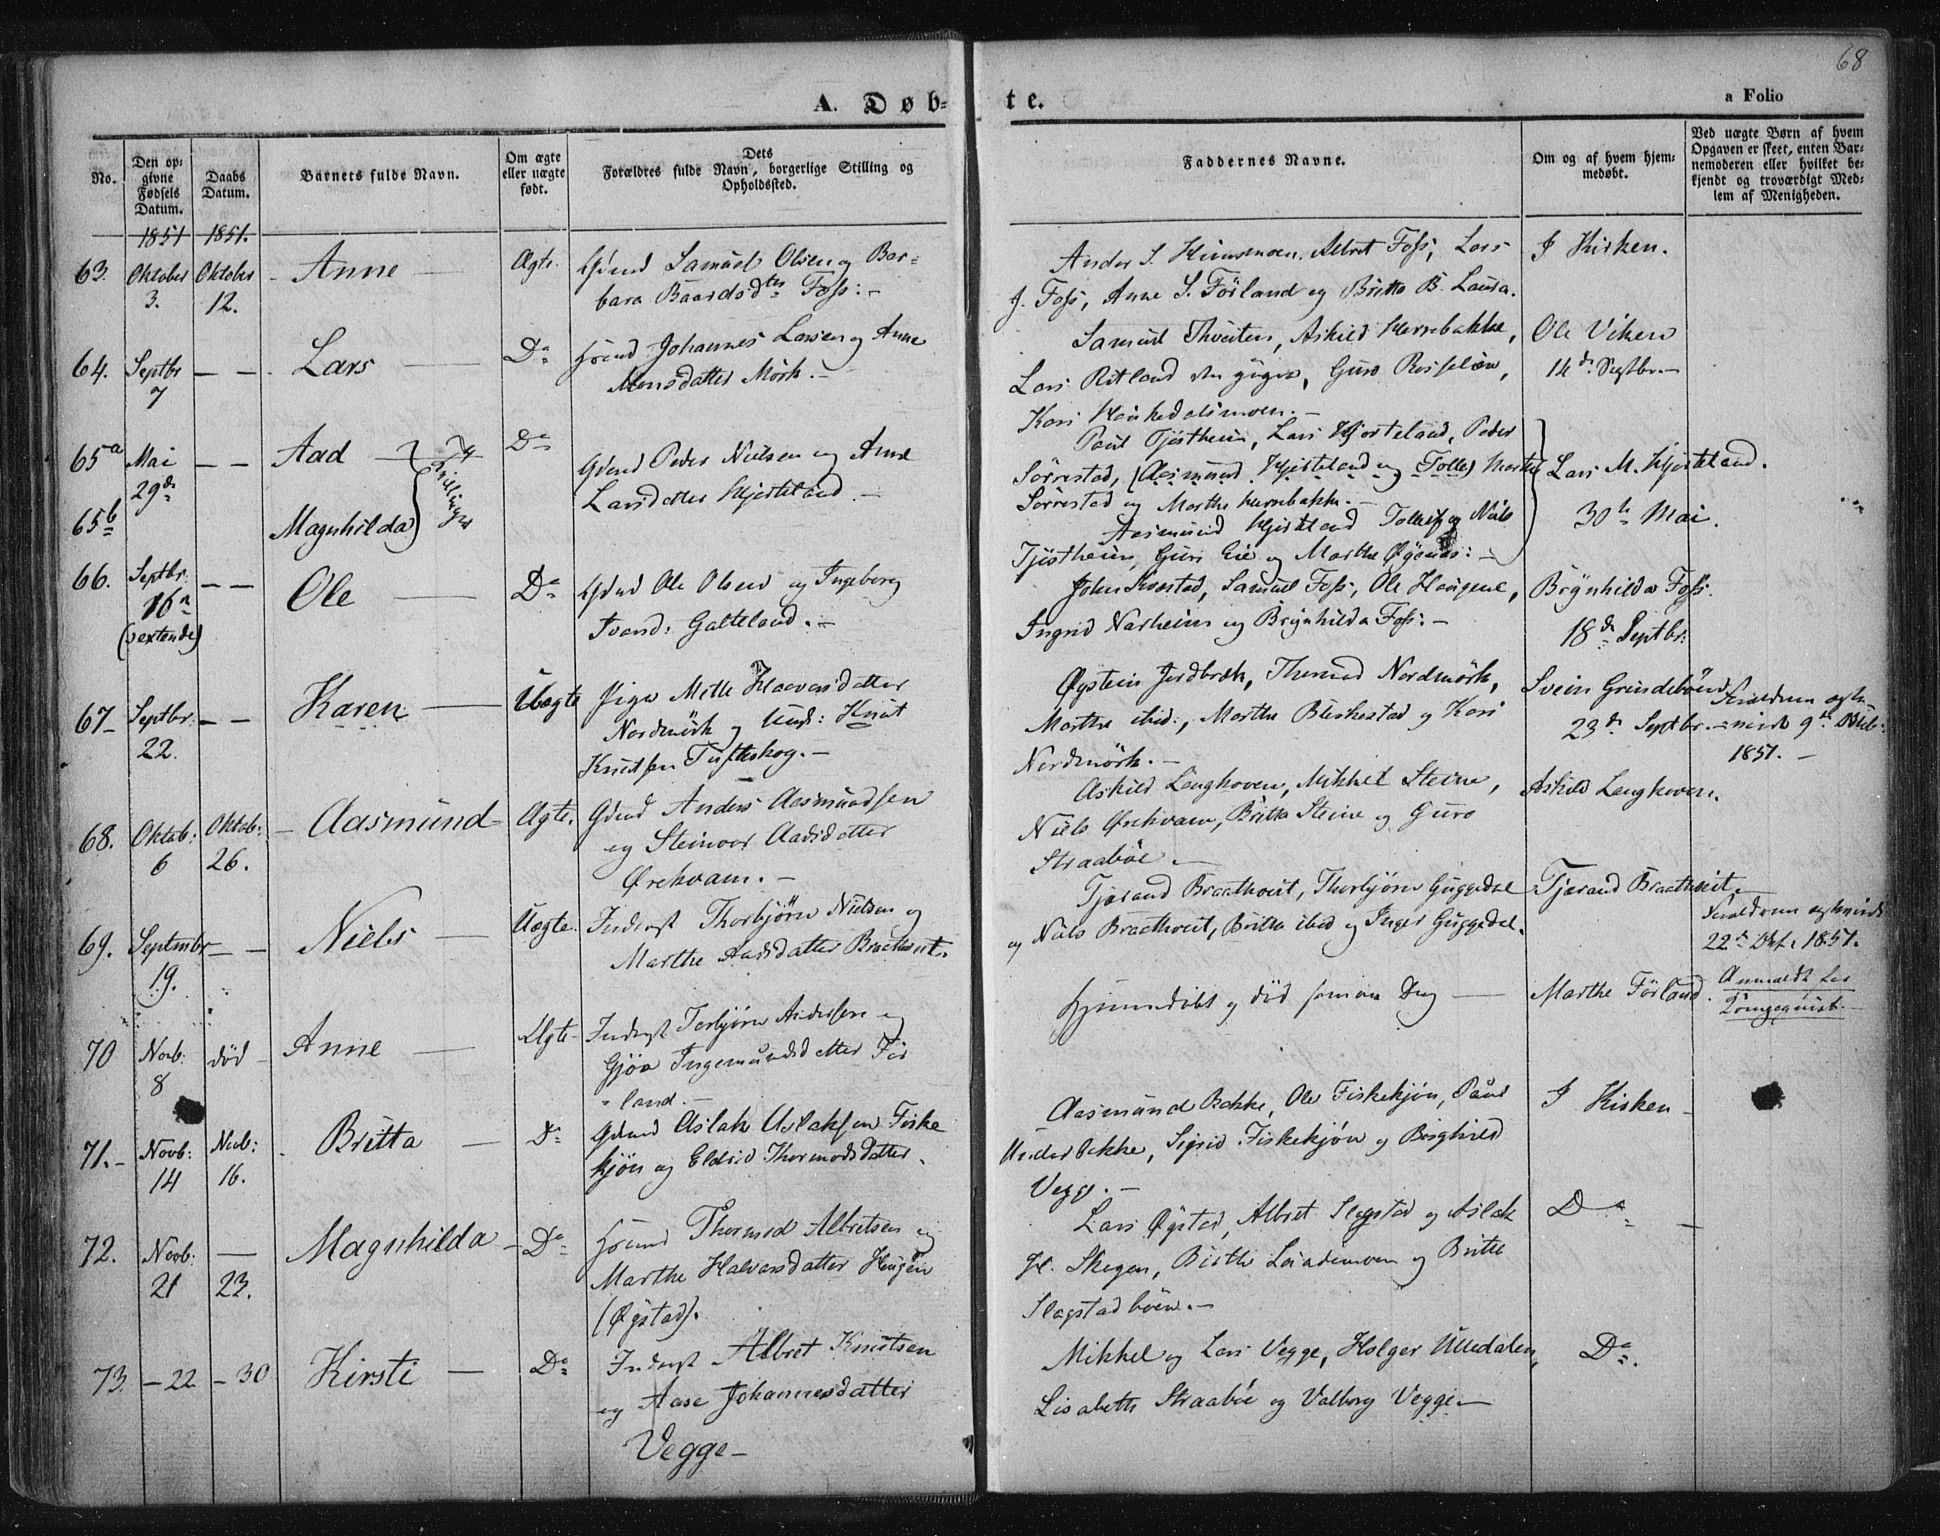 68
A. Døb=
te.
a Folio
No.
Den op=
givne
Fødsels
Datum.
Daabs
Datum.
Barnets fulde Navn.
Om ægte
eller uægte
født.
Dets
Forældres fulde Navn, borgerlige Stilling og
Opholdssted.
Faddernes Navne.
Om og af hvem hjem=
medøbt.
Ved uægte Børn af hvem
Opgaven er skeet, enten Bar=
nemoderen eller hvilket be=
kjendt og troværdigt Med=
lem af Menigheden.
1851 1851.
63. Oktober 3. Oktober 12. Anne Ægte. Gdmd Samuel Olsen og Bar=
bara Baardsdtr Foss: -
Anders S. Albret Foss, Lars
J. Foss, Anne S. Førland og Britta B. Lauva.
I Kirken.
64. Septbr 7 — — Lars Do Huusmd Johannes Larsen og Anne
Monsdatter Mørk. -
Samuel Thveiten, Askild Herrebakke,
Lars Ritland den yngre, Guro
Kari
Ole Viken
14de Septbr. -
65a Mai 29de — — Aad Tvillinger Do Gdmd Peder Nielsen og Anne
Larsdatter Hjorteland. -
65b Magnhilda
Paul Tjøstheim, Lars Hjorteland, Peder
Sørrestad, (Aasmund Hjorteland og Tollef) Marthe
Sørrestad og Marthe Herrebakke. -
Aasmund Hjorteland Tollef og Niels
Tjøstheim, Guri Eie og Marthe Øgenes: -
Lars M. Hjorteland.
30te Mai.
66. Septbr. 16n
(sextende) — — Ole Do Gdmd Ole Olsen og Ingeborg
Galteland. -
John Samuel Foss, Ole Haugene,
Ingrid Narheim og Brynhilda Foss: -
Brynhilda Foss.
18de Septbr:
67 Septbr. 22. — — Karen Uægte Pige Mette Haavarsdatter
Nordmørk og Und: Knut
Knudsen Tufteskog. -
Øystein Jordbræk, Thormod Nordmørk,
Marthe ibid:, Marthe Birkestad og Kari
Nordmørk. -
Svein Grundebøen
23de Septbr. -
Forældrene ægte=
viede 9de Oktb:
1851. -
68. Oktob: 6 Oktob: 26. Aasmund Ægte. Gdmd Anders Aasmundsen
og Steinvor Aadsdatter
Ørekvam. -
Askild Langhoven, Mikkel Steine,
Niels Ørekvam, Britta Steine og Guro
Straabøe. -
Askild Langhoven.
69. Septembr 19. — Niels Uægte. Inderst Thorbjørn Nielsen og
Marthe Aadsdatter Braathveit.
Tjærand Braathveit, Thorbjørn Guggedal
og Niels Braathveit, Britta ibid og Inger Guggedal.
Tjærand Braathveit.
Forældrene ægteviede
22de Okt. 1851.
70 Novb: 8 død Anne Ægte. Inderst Torbjørn Andersen og
Gjøa Ingemundsdatter Før
=land. -
Hjemmedøbt og død samme Dag
Marthe Førland.
Anmeldt
71. - Novb: 14 Novb: 16. Britta Do Gdmd Aslak Aslaksen Fiske
kjøn og Eldrid Thormodsdatter.
Aasmund Bakke, Ole Fiskekjøn, Paul
Underbakke, Sigrid Fiskekjøn og Borghild
Vegge. -
I Kirken -
72. Novb: 21 — 23. Magnhilda Do Huusmd Thormod Albretsen og
Marthe Halvorsdatter Haugen
(Øgstad).
Lars Øgstad, Albret Slagstad og Aslak
H. Skogen, Birthe og Britte
Slagstadbøen. -
Do
73. - 22 - 30 Kirsti Do Inderst Albret Knutsen
og Aase Johannesdatter
Vegge -
Mikkel og Lars Vegge, Holger Ulledalen,
Lisabeth Straabøe og Valborg Vegge -
Do.